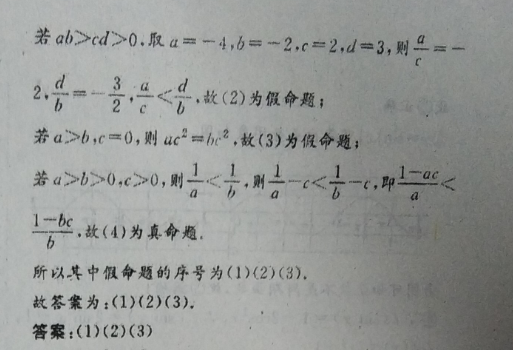 若 ab>cd>0,取 a=-4,b=-2,c=2,d=3,则 a/c=-
2,d/b=-3/2,a/c<d/b,故(2)为假命题;
若 a>b,c=0,则 ac²=bc²,故(3)为假命题;
若 a>b>0,c>0,则 1/a<1/b,则 1/a-c<1/b-c,即 (1-ac)/a<
(1-bc)/b,故(4)为真命题.
所以其中假命题的序号为(1)(2)(3).
故答案为:(1)(2)(3).
答案:(1)(2)(3)